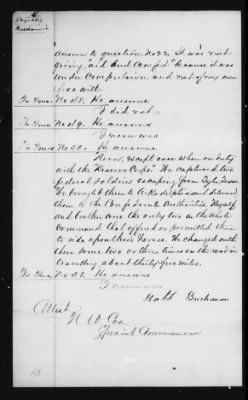 answer to question No 22, It was not
giving "aid and comfort" because it was
under compulsion and not of my own
free will
To Ques. No. 48. He answers
I did not.
To Ques No. 49. He answers
I never was
To Ques No. 50. He answers
Never, except once when on duty
with the Reserve Corps. We captured two
federal soldiers escaping from
We brought them to and delivered
them to the Confederate Authorities. Myself
and brother were the only two in the whole
command that offered or permitted them
to ride upon their horses. We changed with
them some two or three times on the road in
travelling about thirty five miles.
To Ques. No. 51. He answers
I never was
Buchanan
Attest
Special Commissioner